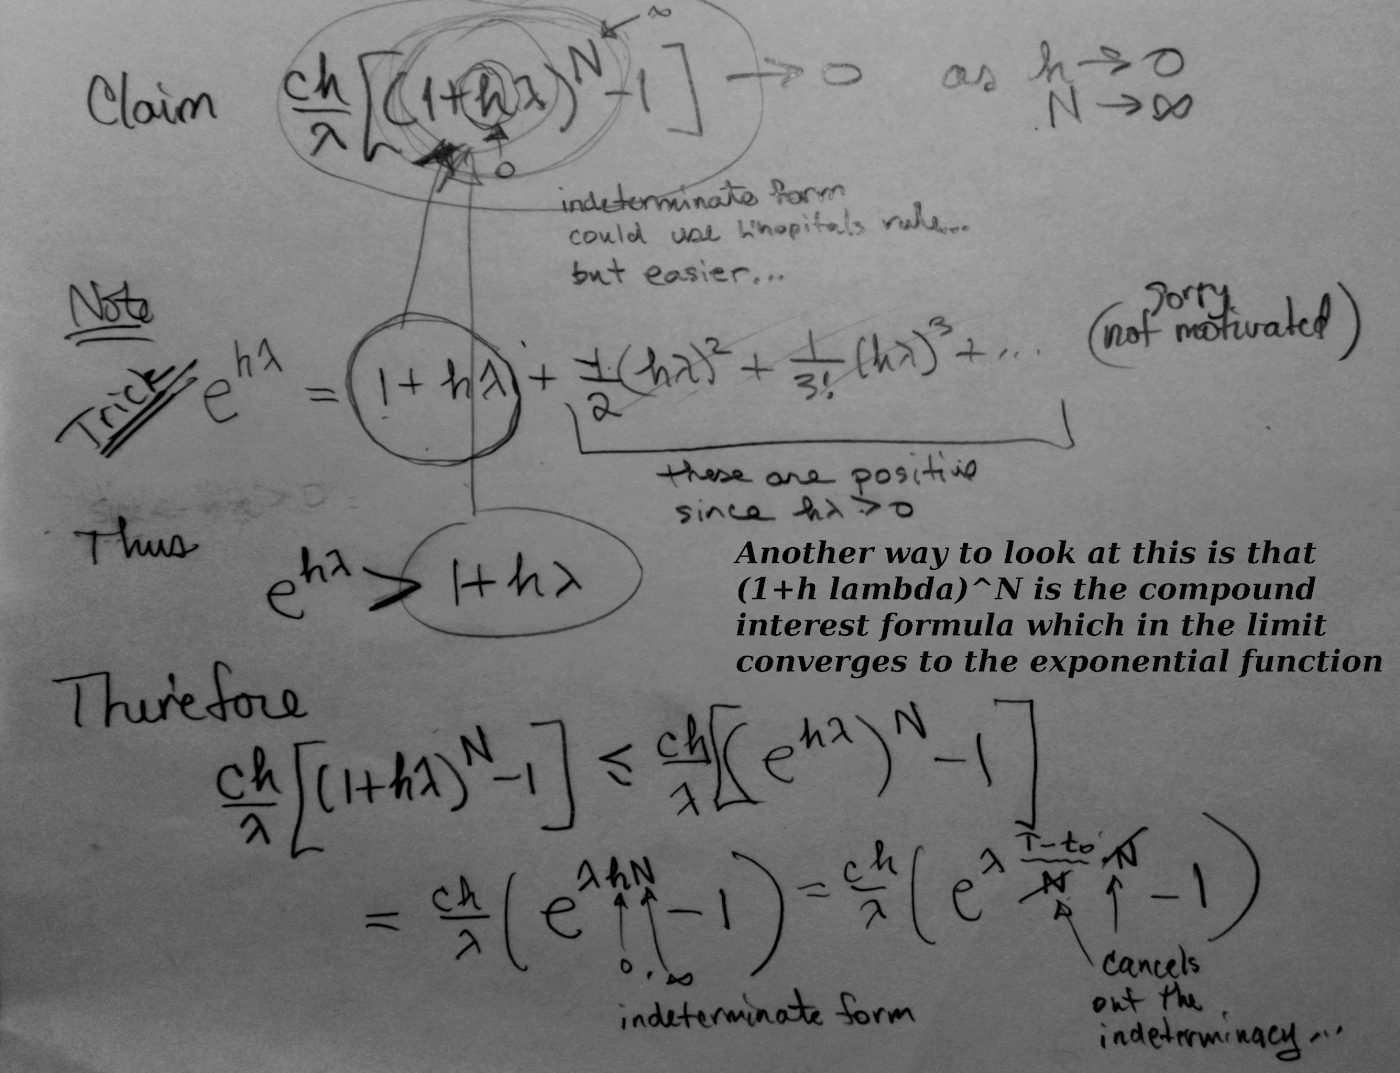 Claim ch/λ [(1+hλ)^N -1] → 0 as h → 0
N → ∞
∞
0
indeterminate form
could use L'hopitals rule...
but easier...
Note
Trick e^hλ = 1 + hλ + 1/2 (hλ)^2 + 1/3! (hλ)^3 + ...
(sorry
not motivated)
these are positive
since hλ > 0
Thus e^hλ > 1+hλ
Another way to look at this is that
(1+h lambda)^N is the compound
interest formula which in the limit
converges to the exponential function
Therefore
ch/λ [(1+hλ)^N -1] ≤ ch/λ [(e^hλ)^N -1]
= ch/λ (e^λhN -1) = ch/λ (e^λ T-t₀/N N -1)
0 . ∞
indeterminate form
cancels
out the
indeterminacy...